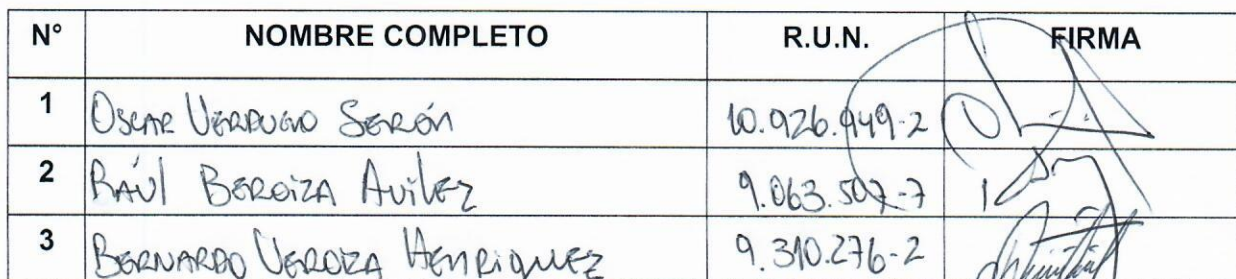 N° NOMBRE COMPLETO R.U.N. FIRMA
1 Oscar Verdugo Serón 10.926.949-2
2 Raúl Beroiza Avilez 9.063.507-7
3 Bernardo Veroiza Henriquez 9.310.276-2